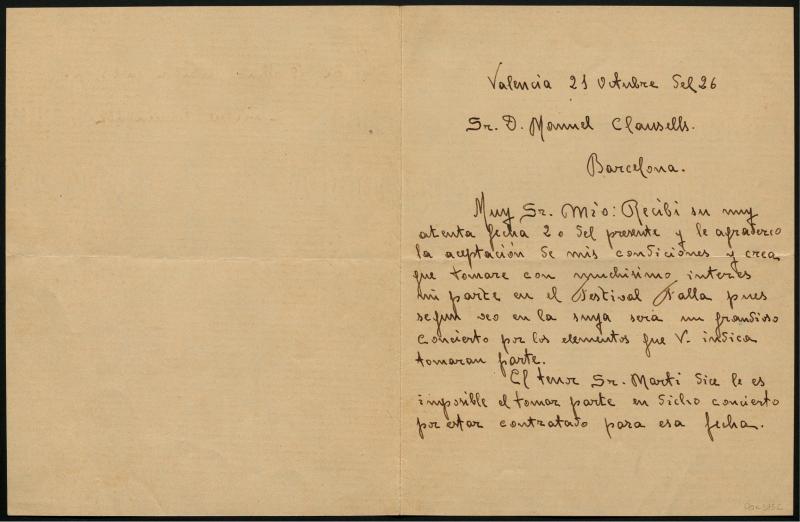 Valencia 21 Octubre del 26
Sr. D. Manuel Clausells.
Barcelona.
Muy Sr. Mio: Recibi su muy
atenta fecha 20 del presente y le agradezco
la aceptación de mis condiciones y crea
que tomare con muchisimo interes
mi parte en el Festival Falla pues
segun veo en la suya será un grandioso
concierto por los elementos que V. indica
tomaran parte.
El tenor Sr. Marti dice le es
imposible el tomar parte en dicho concierto
por estar contratado para esa fecha.